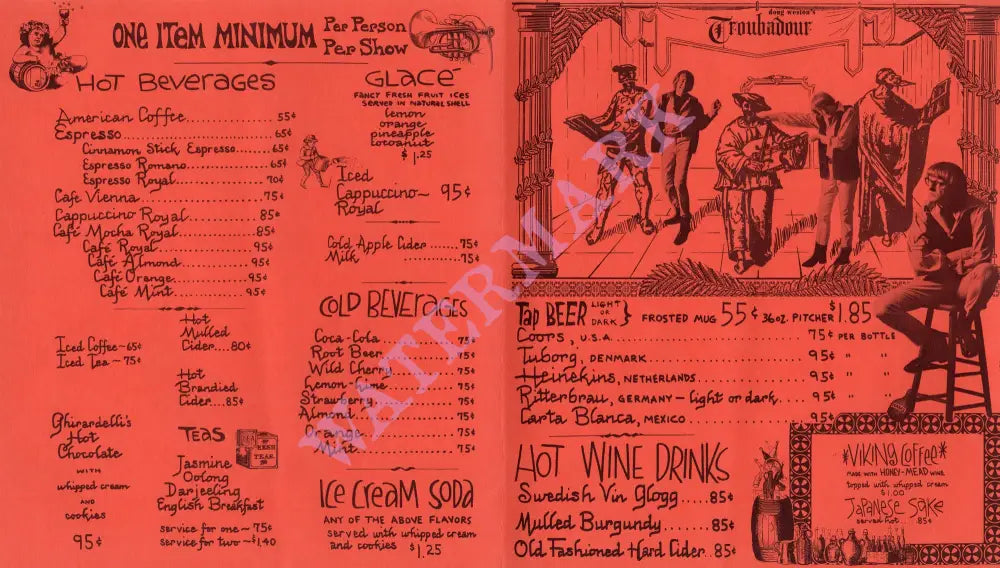 ONE ITEM MINIMUM Per Person
Per Show
HOT BEVERAGES
American Coffee 55¢
Espresso 65¢
Cinnamon Stick Espresso 65¢
Espresso Romano 65¢
Espresso Royal 70¢
Cafe Vienna 75¢
Cappuccino Royal 85¢
Café Mocha Royal 85¢
Café Royal 95¢
Café Almond 95¢
Café Orange 95¢
Café Mint 95¢
Iced Coffee~65¢
Iced Tea~75¢
Hot
Mulled
Cider....80¢
Hot
Brandied
Cider....85¢
Ghirardelli's
Hot
Chocolate
WITH
whipped cream
AND
cookies
95¢
TEAS
FRESH
TEAS
Jasmine
Oolong
Darjeeling
English Breakfast
service for one~75¢
service for two~$1.40
GLACÉ
FANCY FRESH FRUIT ICES
SERVED IN NATURAL SHELL
lemon
orange
pineapple
cocoanut
$1.25
Iced
Cappuccino~ 95¢
Royal
Cold Apple Cider 75¢
Milk 75¢
COLD BEVERAGES
Coca-Cola 75¢
Root Beer 75¢
Wild Cherry 75¢
Lemon-Lime 75¢
Strawberry 75¢
Almond 75¢
Orange 75¢
Mint 75¢
Ice Cream Soda
ANY OF THE ABOVE FLAVORS
served with whipped cream
and cookies $1.25
doug weston's
Troubadour
Tap BEER LIGHT OR DARK } FROSTED MUG 55¢ 36oz. PITCHER $1.85
Coors, U.S.A. 75¢ PER BOTTLE
Tuborg, DENMARK 95¢ " "
Heinekins, NETHERLANDS 95¢ " "
Ritterbrau, GERMANY—light or dark 95¢ " "
Carta Blanca, MEXICO 95¢ " "
HOT WINE DRINKS
Swedish Vin Glogg 85¢
Mulled Burgundy 85¢
Old Fashioned Hard Cider 85¢
*VIKING Coffee*
MADE WITH HONEY-MEAD WINE
topped with whipped cream
$1.00
JAPANESE SAKE
served hot 85¢
WATERMARK